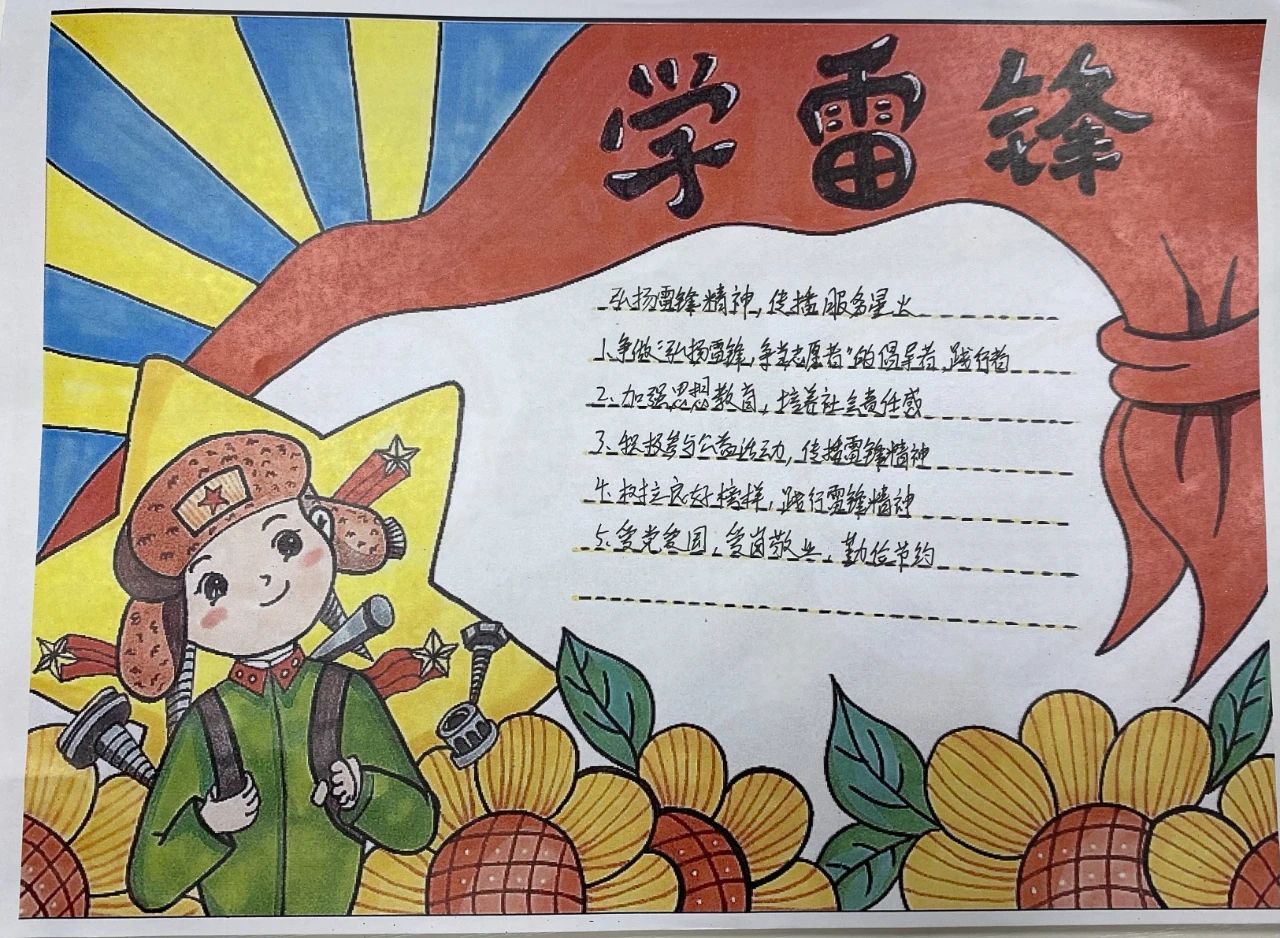 学雷锋
弘扬雷锋精神，传播服务星火
1、争做“弘扬雷锋，争当志愿者”的倡导者、践行者
2、加强思想教育，培养社会责任感
3、积极参与公益活动，传播雷锋精神
4、树立良好榜样，践行雷锋精神
5、爱党爱国，爱岗敬业，勤俭节约